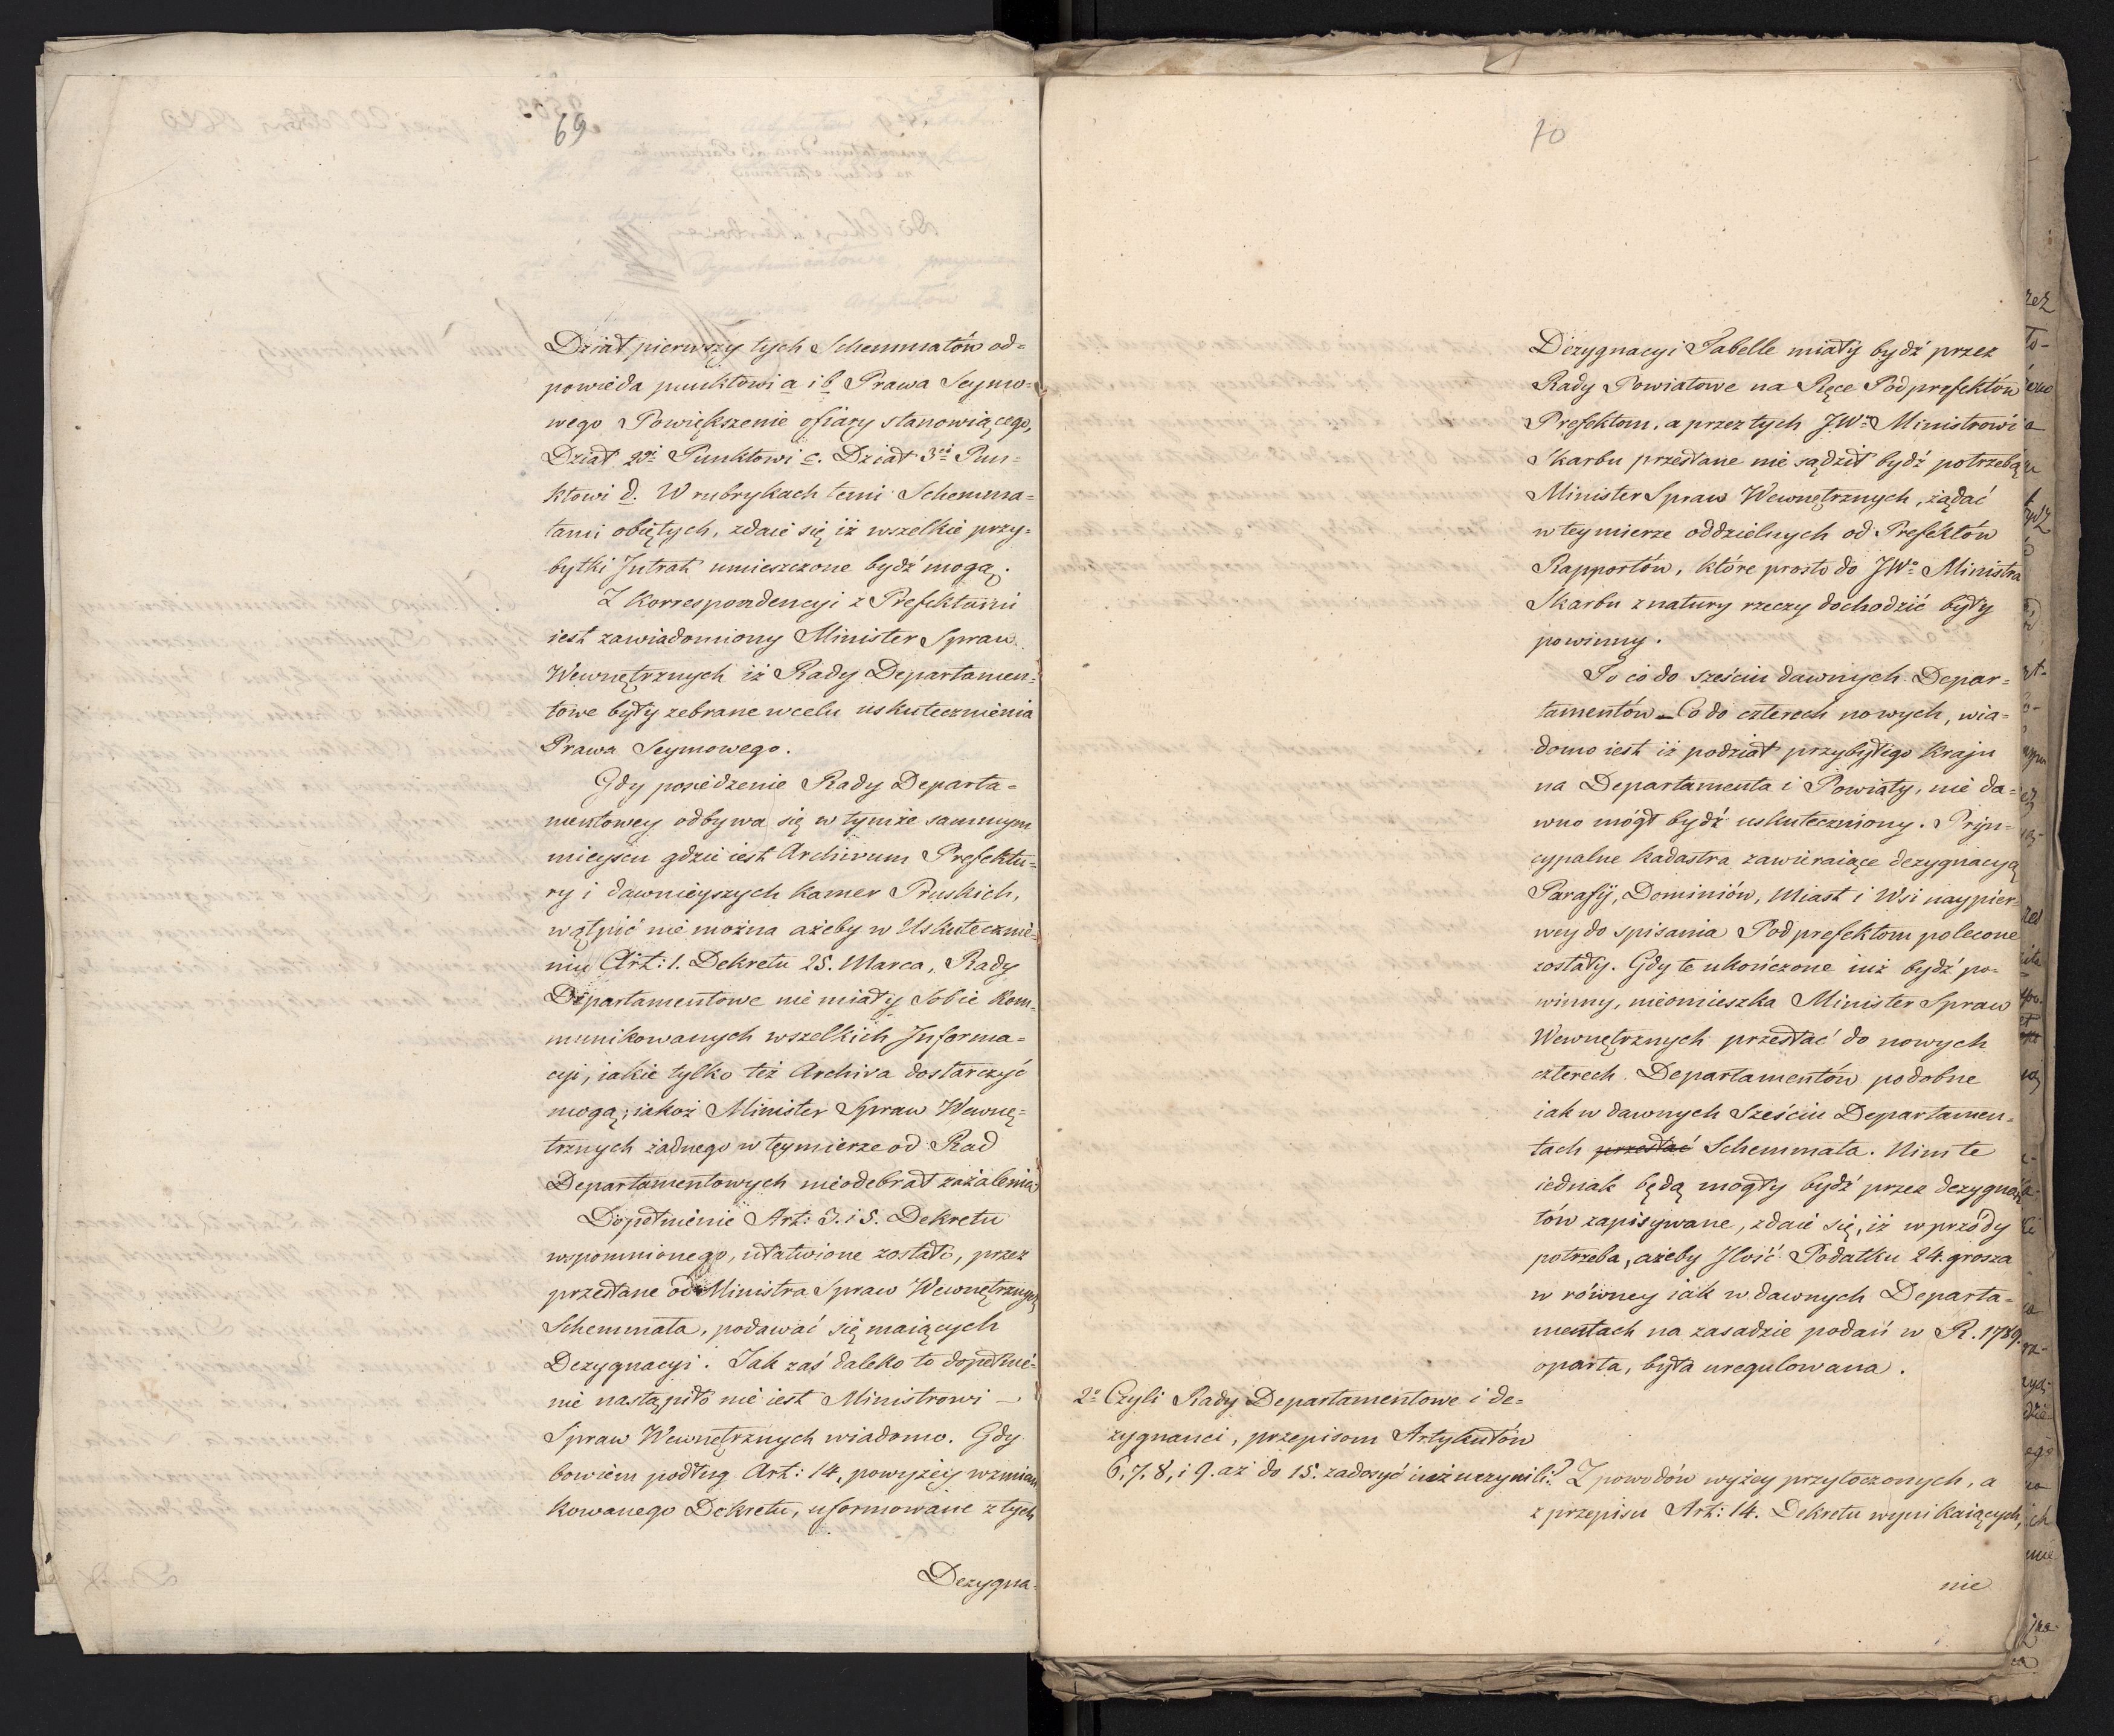 69
Dział pierwszy tych Schemmatów od=
powieda punktowi a i b Prawa Seymo=
wego Powiększenie ofiary stanowiącego,
Dział 2gi Punktowi c. Dział 3ci Pun=
ktowi d. W rubrykach temi Schemma=
tami obiętych, zdaie się iż wszelkie przy=
bytki Intrat umieszczone bydź mogą.
Z Korrespondencyi z Prefektami
iest zawiadomiony Minister Spraw
Wewnętrznych iż Rady Departamen=
towe były zebrane w celu uskutecznienia
Prawa Seymowego.
Gdy posiedzenie Rady Departa=
mentowey odbywa się w tymże samym
mieyscu gdzie iest Archivum Prefektu=
ry i dawnieyszych Kamer Pruskich,
wątpić nie można ażeby w Uskutecznie=
niu Art: 1. Dekretu 25. Marca, Rady
Departamentowe nie miały Sobie kom=
munikowanych wszelkich Informa=
cyi, iakie tylko też Archiva dostarczyć
mogą; iakoż Minister Spraw Wewnę=
trznych żadnego w tey mierze od Rad
Departamentowych nieodebrał zażalenia
Dopełnienie Art: 3. i 5. Dekretu
wspomnionego, ułatwione zostało, przez
przesłane od Ministra Spraw Wewnętrznych
Schemmata, podawać się maiących
Dezygnacyi. Jak zaś daleko to dopełnie=
nie nastąpiło nie iest Ministrowi —
Spraw Wewnętrznych wiadomo. Gdy
bowiem podług Art: 14, powyżey wzmian
kowanego Dekretu, uformowane z tych
Dezygna=
70
Dezygnacyi Tabelle miały bydź przez
Rady Powiatowe na Ręce Podprefektów
Prefektom, a przez tych JWo Ministrowi
Skarbu przesłane nie sądził bydź potrzebą
Minister Spraw Wewnętrznych, żądać
w tey mierze oddzielnych od Prefektów
Rapportów, które prosto do JWo Ministra
Skarbu z natury rzeczy dochodzić były
powinny.
To co do sześciu dawnych Depar=
tamentów — Co do czterech nowych, wia=
domo iest iż podział przybyłego Kraju
na Departamenta i Powiaty, nie da=
wno mógł bydź uskuteczniony. Pryn=
cypalne Kadastra zawieraiące dezygnacyą
Parafij, Dominiów, Miast i Wsi naypier=
wey do spisania Podprefektom polecone
zostały. Gdy te ukończone iuż bydź po=
winny, nieomieszka Minister Spraw
Wewnętrznych przesłać do nowych
czterech Departamentów podobne
iak w dawnych Sześciu Departamen=
tach przesłać Schemmata. Nim te
iednak będą mogły bydź przez dezygna
tów zapisywane, zdaie się, iż wprzódy
potrzeba, ażeby Ilość Podatku 24. grosza
w równey iak w dawnych Departa=
mentach na zasadzie podań w R. 1789.
oparta, była uregulowana.
2o Czyli Rady Departamentowe i de=
zygnanci, przepisom Artykułów
6, 7, 8, i 9. aż do 15. zadosyć iuż uczynili? Z powodów wyżey przytoczonych, a
z przepisu Art: 14. Dekretu wynikaiących,
nie